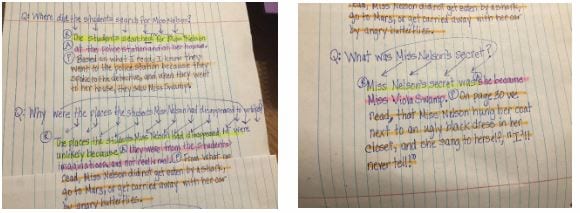 Q: Where did the students search for Miss Nelson?
R The students searched for Miss Nelson
A at the police station and at her house.
P Based on what I read, I know they
went to the police station because they
spoke to the detective, and when they went
to her house, they saw Miss Swamp.
Q: Why were the places the students Miss Nelson had disappeared to unlikely
R The places the students Miss Nelson had disappeared to were
unlikely because A they were from the students'
imaginations and not really real. P From what we
read, Miss Nelson did not get eaten by a shark,
go to Mars, or get carried away with her car
by angry butterflies.
read, Miss Nelson did not get eaten by a shark,
go to Mars, or get carried away with her car
by angry butterflies.
Q: What was Miss Nelson's secret?
R Miss Nelson's secret was A she became
Miss Viola Swamp. P On page 30 we
read, that Miss Nelson hung her coat
next to an ugly black dress in her
closet, and she sang to herself, "I'll
never tell!"